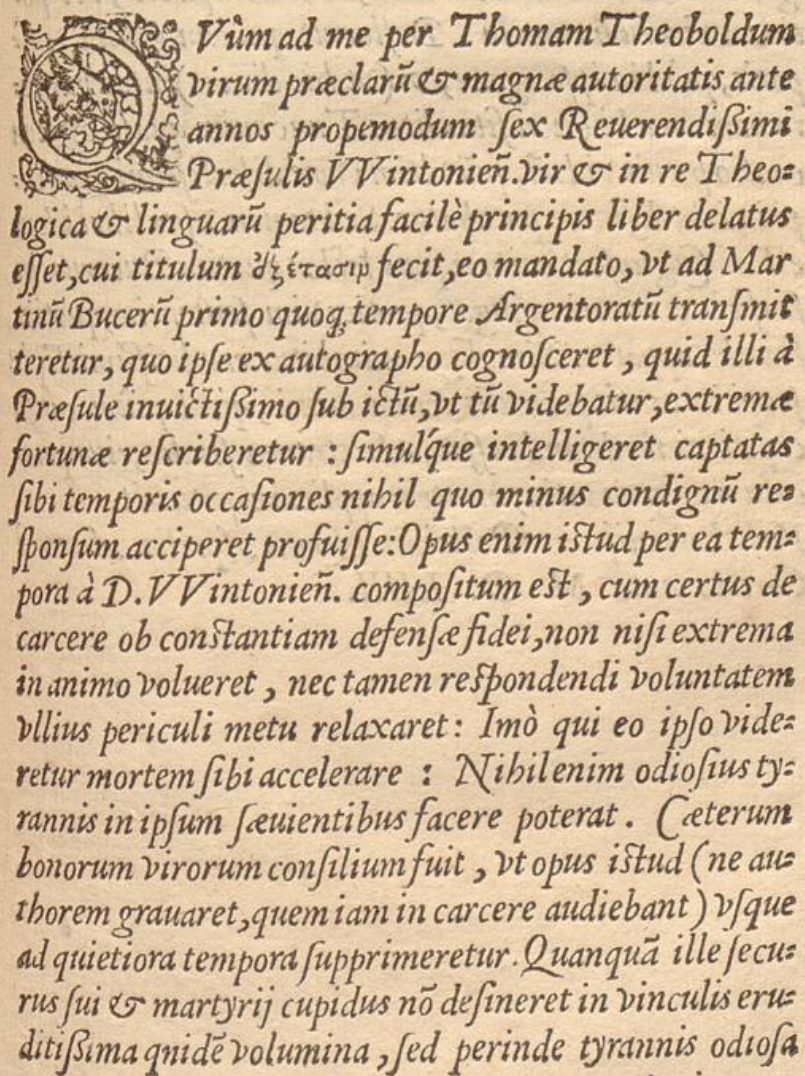 QVùm ad me per Thomam Theoboldum
virum præclarũ & magnæ autoritatis ante
annos propemodum ſex Reuerendiſsimi
Præſulis VVintonieñ. vir & in re Theo⸗
logica & linguarũ peritia facilè principis liber delatus
eſſet, cui titulum ἐξέτασιν fecit, eo mandato, vt ad Mar
tinũ Bucerũ primo quoq; tempore Argentoratũ tranſmit
teretur, quo ipſe ex autographo cognoſceret, quid illi à
Præſule inuictiſsimo ſub ictũ, vt tũ videbatur, extremæ
fortunæ reſcriberetur : ſimuĺque intelligeret captatas
ſibi temporis occaſiones nihil quo minus condignũ re⸗
ſponſum acciperet profuiſſe: Opus enim iſtud per ea tem⸗
pora à D. VVintonieñ. compoſitum eſt, cum certus de
carcere ob conſtantiam defenſæ fidei, non niſi extrema
in animo volueret, nec tamen reſpondendi voluntatem
vllius periculi metu relaxaret: Imò qui eo ipſo vide⸗
retur mortem ſibi accelerare : Nihil enim odioſius ty⸗
rannis in ipſum ſæuientibus facere poterat. Cæterum
bonorum virorum conſilium fuit, vt opus iſtud (ne au⸗
thorem grauaret, quem iam in carcere audiebant) vſque
ad quietiora tempora ſupprimeretur. Quanquã ille ſecu⸗
rus ſui & martyrij cupidus nõ deſineret in vinculis eru⸗
ditiſsima qnidẽ volumina, ſed perinde tyrannis odioſa